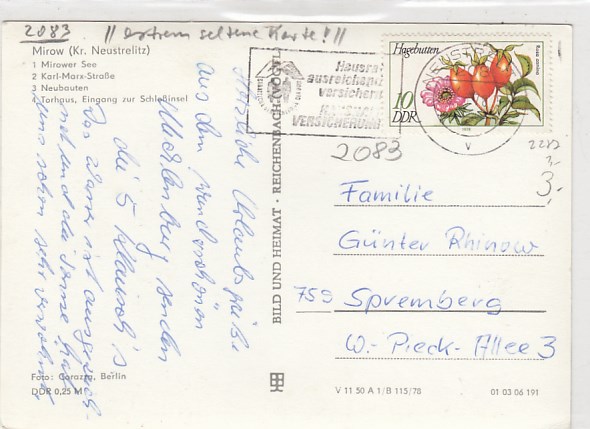 2083 || extrem seltene Karte! ||
Mirow (Kr. Neustrelitz)
1 Mirower See
2 Karl-Marx-Straße
3 Neubauten
4 Torhaus, Eingang zur Schloßinsel
Herzliche Urlaubsgrüße
aus dem wunderschönen
Mecklenburg senden
die 5
Das Wetter ist ausgezeich-
net und die Sonne hat
uns schon sehr verwöhnt
Foto: Darazs, Berlin
DDR 0,25 M
BILD UND HEIMAT · REICHENBACH (VOGTL)
Hausrat
ausreichend
versichern
HAUSHALT
VERSICHERUNG
Hagebutten
10
DDR
2083
2283
3,-
3,-
Familie
Günter Rhinow
759 Spremberg
W.-Pieck-Allee 3
V 11 50 A 1/B 115/78
01 03 06 191